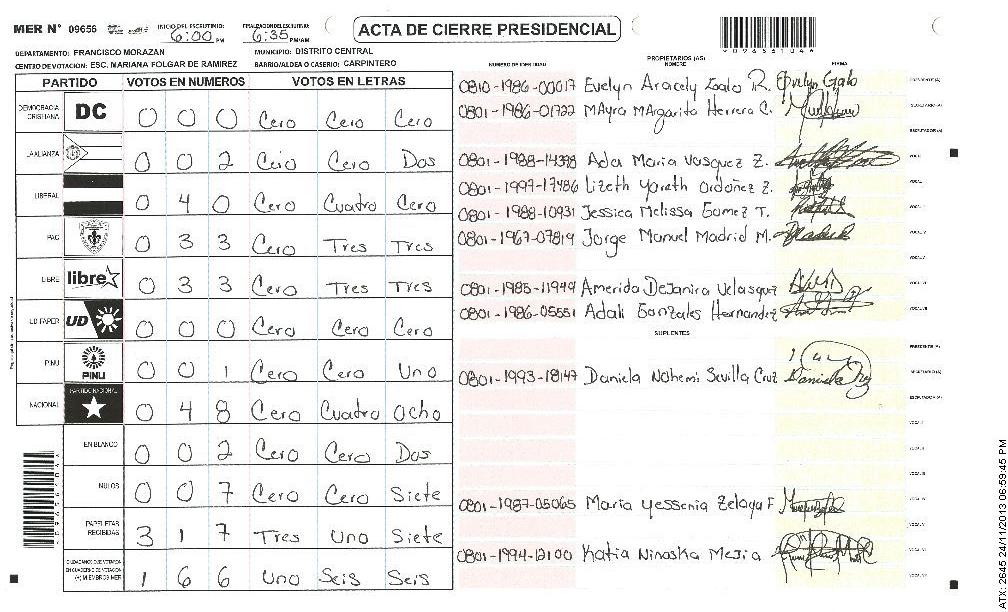 MER N° 09656 INICIO DEL ESCRUTINIO: 6:00 PM FINALIZACION DEL ESCRUTINIO: 6:35 PM/AM
ACTA DE CIERRE PRESIDENCIAL
DEPARTAMENTO: FRANCISCO MORAZAN MUNICIPIO: DISTRITO CENTRAL
CENTRO DE VOTACION: ESC. MARIANA FOLGAR DE RAMIREZ BARRIO/ALDEA O CASERIO: CARPINTERO
PARTIDO VOTOS EN NUMEROS VOTOS EN LETRAS
DEMOCRACIA CRISTIANA DC 0 0 0 Cero Cero Cero
LA ALIANZA 0 0 2 Cero Cero Dos
LIBERAL 0 4 0 Cero Cuatro Cero
PAC 0 3 3 Cero Tres Tres
LIBRE libre 0 3 3 Cero Tres Tres
UD FAPER UD 0 0 0 Cero Cero Cero
PINU PINU 0 0 1 Cero Cero Uno
NACIONAL PARTIDO NACIONAL 0 4 8 Cero Cuatro Ocho
EN BLANCO 0 0 2 Cero Cero Dos
NULOS 0 0 7 Cero Cero Siete
PAPELETAS RECIBIDAS 3 1 7 Tres Uno Siete
CIUDADANOS QUE VOTARON EN CUADERNO DE VOTACION (+) MIEMBROS MER 1 6 6 Uno Seis Seis
NUMERO DE IDENTIDAD PROPIETARIOS (AS) NOMBRE FIRMA
0810-1986-00017 Evelyn Aracely Galo R. Evelyn Galo PRESIDENTE (A)
0801-1986-01722 Mayra Margarita Herrera C. SECRETARIO (A)
ESCRUTADOR (A)
0801-1988-14378 Ada Maria Vasquez Z. VOCAL I
0801-1997-17486 Lizeth Yoreth Ordoñez Z.
0801-1988-10931 Jessica Melissa Gomez T.
0801-1967-07819 Jorge Manuel Madrid M.
0801-1985-11949 Amerida Dejanira Velasquz
0801-1986-05551 Adali Gonzales Hernandez
SUPLENTES
PRESIDENTE (A)
0801-1993-18147 Daniela Nohemi Sevilla Cruz SECRETARIO (A)
ESCRUTADOR (A)
0801-1987-05065 Maria Yessenia Zelaya F
0801-1994-12100 Katia Ninoska Mejia
ATX: 2645 24/11/2013 06:59:45 PM